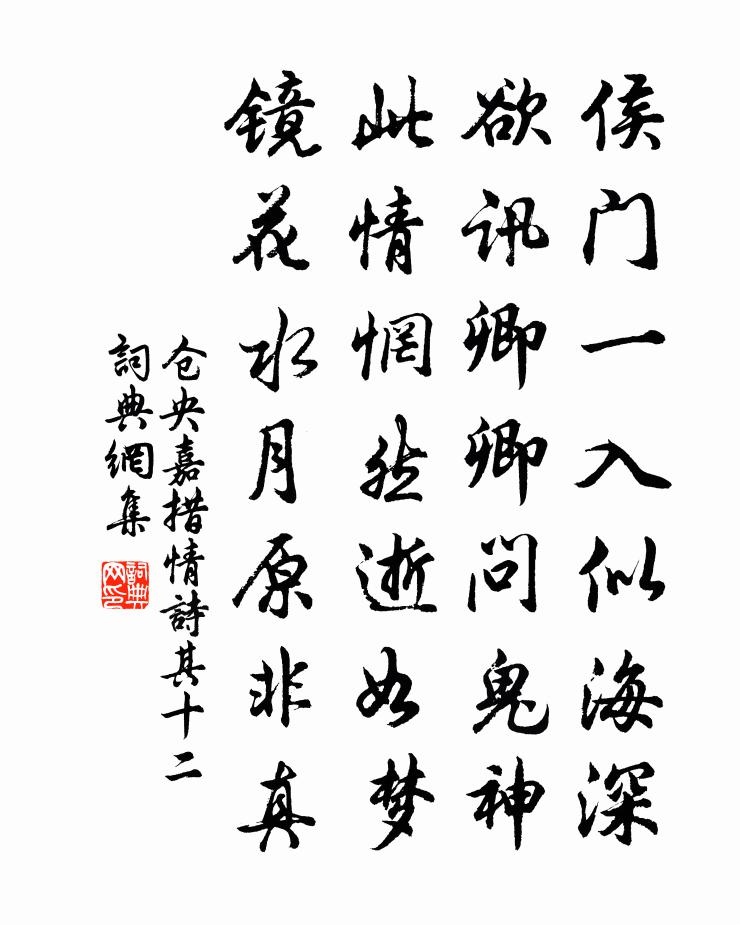 侯门一入似海深
欲讯卿卿问鬼神
此情惘然逝如梦
镜花水月原非真
仓央嘉措情詩其十二
詞典網集
詞典网印